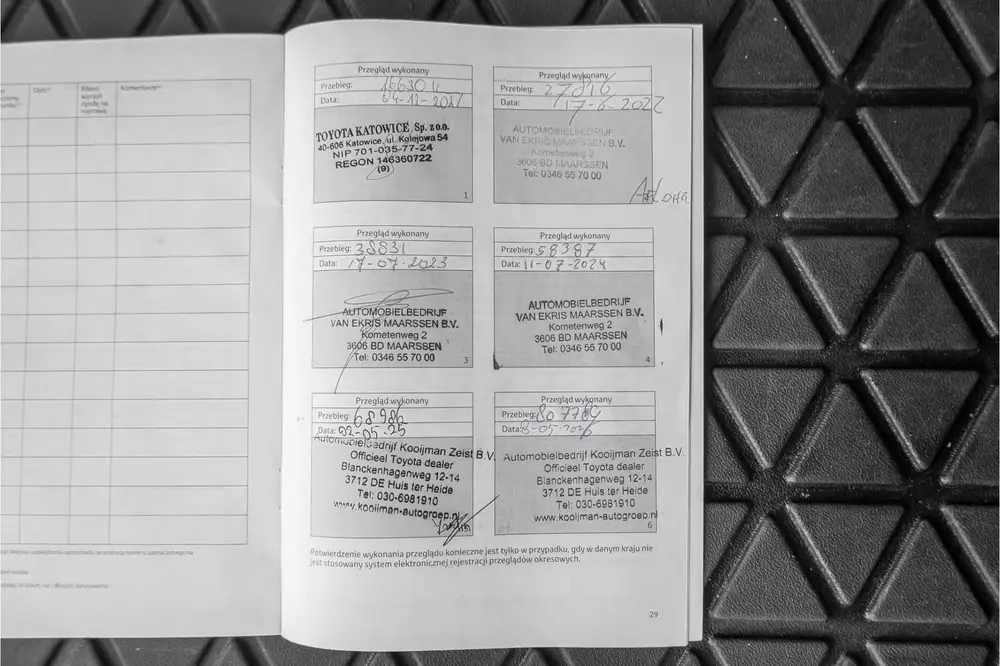 Opis
Komentarze
Przegląd wykonany
Przebieg: 16630
Data: 04-12-2021
TOYOTA KATOWICE Sp. z o.o.
40-606 Katowice, ul. Kolejowa 54
NIP 701-035-77-24
REGON 146360722
(9)
1
Przegląd wykonany
Przebieg: 27816
Data: 17-6-2022
AUTOMOBIELBEDRIJF
VAN EKRIS MAARSSEN B.V.
Kometenweg 2
3606 BD MAARSSEN
Tel: 0346 55 70 00
Przegląd wykonany
Przebieg: 38831
Data: 17-07-2023
AUTOMOBIELBEDRIJF
VAN EKRIS MAARSSEN B.V.
Kometenweg 2
3606 BD MAARSSEN
Tel: 0346 55 70 00
3
Przegląd wykonany
Przebieg: 58387
Data: 11-07-2024
AUTOMOBIELBEDRIJF
VAN EKRIS MAARSSEN B.V.
Kometenweg 2
3606 BD MAARSSEN
Tel: 0346 55 70 00
4
Przegląd wykonany
Przebieg: 68986
Data: 02-05-25
Automobielbedrijf Kooijman Zeist B.V.
Officieel Toyota dealer
Blanckenhagenweg 12-14
3712 DE Huis ter Heide
Tel: 030-6981910
www.kooijman-autogroep.nl
Przegląd wykonany
Przebieg:
Data: 8-05-2026
Automobielbedrijf Kooijman Zeist B.V.
Officieel Toyota dealer
Blanckenhagenweg 12-14
3712 DE Huis ter Heide
Tel: 030-6981910
www.kooijman-autogroep.nl
6
Potwierdzenie wykonania przeglądu konieczne jest tylko w przypadku, gdy w danym kraju nie
jest stosowany system elektronicznej rejestracji przeglądów okresowych.
29